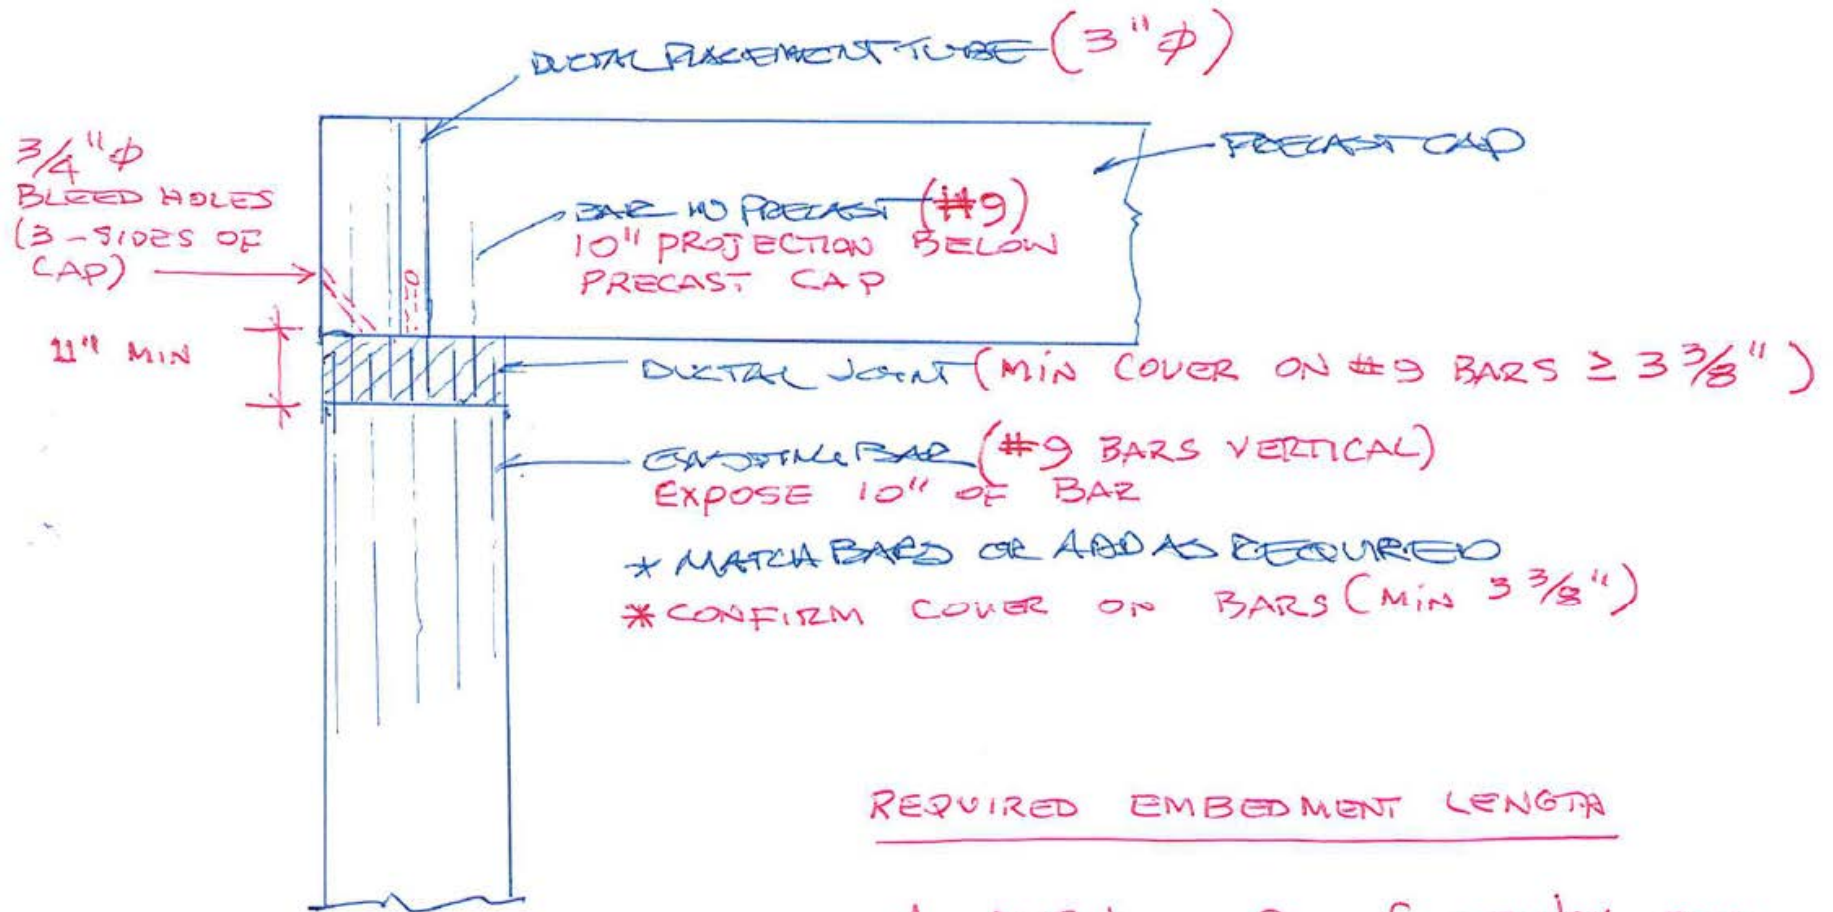 DUCTAL PLACEMENT TUBE (3"⌀)
3/4"⌀
BLEED HOLES
(3-SIDES OF
CAP)
PRECAST CAP
BAR IN PRECAST (#9)
10" PROJECTION BELOW
PRECAST CAP
11" MIN
DUCTAL JOINT (MIN COVER ON #9 BARS ≥ 3 3/8")
EXISTING BAR (#9 BARS VERTICAL)
EXPOSE 10" OF BAR
* MATCH BARS OR ADD AS REQUIRED
* CONFIRM COVER ON BARS (MIN 3 3/8")
REQUIRED EMBEDMENT LENGTH